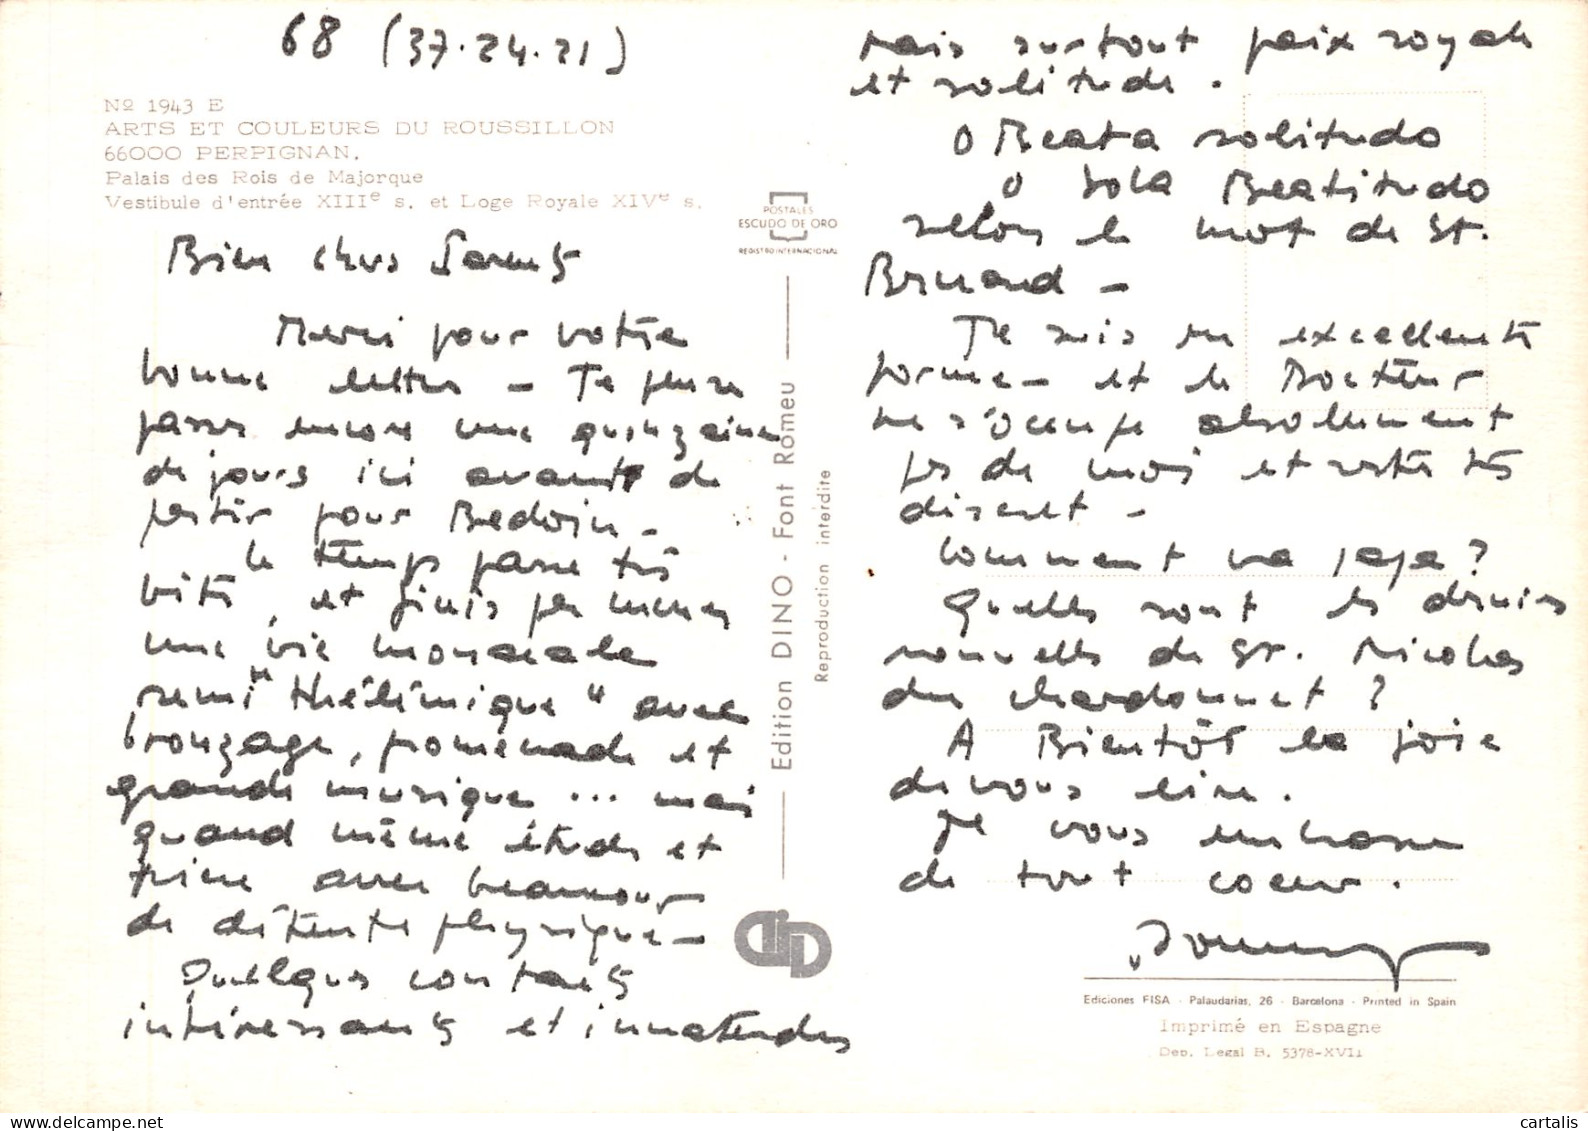 68 (37.24.21)
Nº 1943 E
ARTS ET COULEURS DU ROUSSILLON
66000 PERPIGNAN.
Palais des Rois de Majorque
Vestibule d'entrée XIIIe s. et Loge Royale XIVe s.
Bien chers Parents
Merci pour votre
bonne lettre - Je pense
passer encore une quinzaine
de jours ici avant de
partir pour Bedoin -
Le temps passe très
vite, et j'finis par mener
une vie monacale
semi "thélémique" avec
bronzage, promenade et
grande musique ... mais
quand même étude et
prière avec beaucoup
de détente physique -
Quelques contacts
intéressants et inattendus
mais surtout paix royale
et solitude.
O Beata solitudo
O Sola Beatitudo
selon le mot de St.
Bernard -
Je suis en excellente
forme - et le Docteur
ne s'occupe absolument
pas de moi et reste très
discret -
Comment va papa ?
Quelles sont les dernières
nouvelles de St. Nicolas
du Chardonnet ?
A Bientôt la joie
de vous lire.
Je vous embrasse
de tout coeur.
POSTALES
ESCUDO DE ORO
REGISTRO INTERNACIONAL
Edition DINO - Font Romeu
Reproduction interdite
Ediciones FISA - Palaudarias, 26 - Barcelona - Printed in Spain
Imprimé en Espagne
Dep. Legal B. 5378-XVII
cartalis